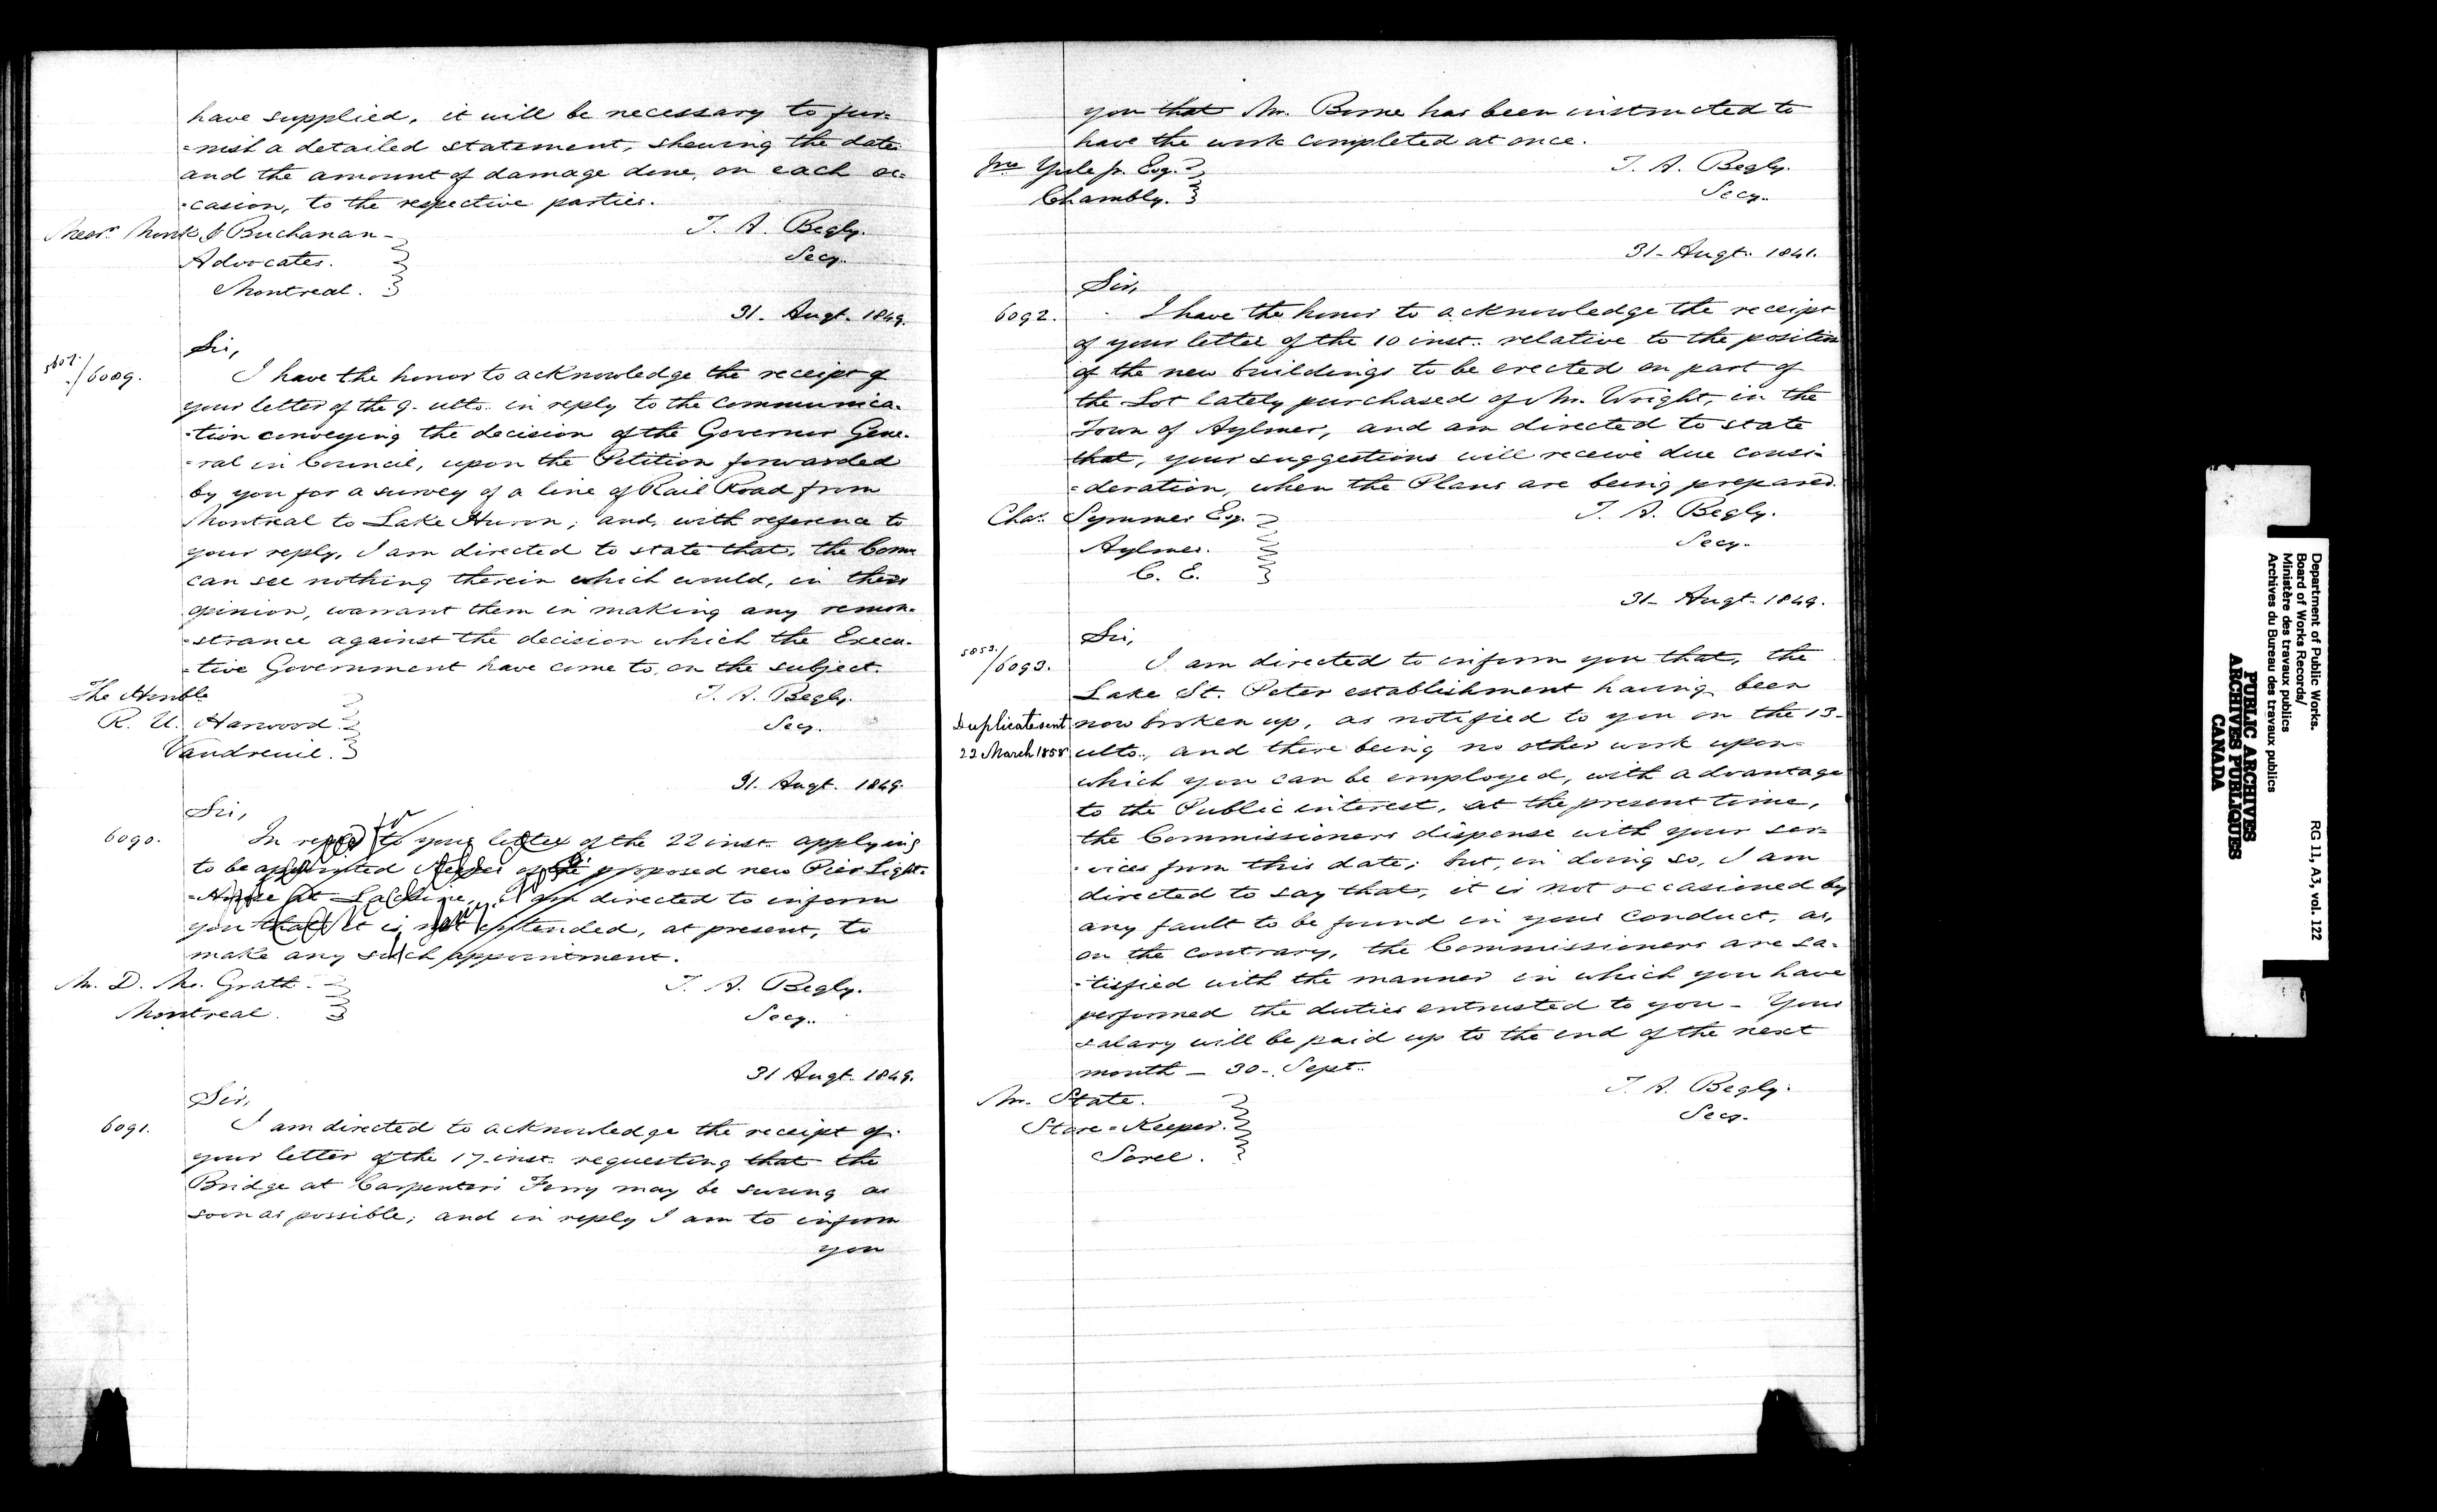 have supplied, it will be necessary to fur=
=nish a detailed statement, shewing the date
and the amount of damage done, on each oc=
=casion, to the respective parties.
Messrs. Monk & Buchanan
T. A. Begly.
Advocates.
Secy.
Montreal.
31. Augt. 1849.
Sir,
6089. I have the honor to acknowledge the receipt of
your letter of the 9. ulto. in reply to the communica-
-tion conveying the decision of the Governor Gene-
-ral in Council, upon the Petition forwarded
by you for a survey of a line of Rail Road from
Montreal to Lake Huron; and, with reference to
your reply, I am directed to state that, the Comrs
can see nothing therein which would, in their
opinion, warrant them in making any remon-
-strance against the decision which the Execu-
-tive Government have come to, on the subject.
The Honble
T. A. Begly.
R. U. Harwood
Secy.
Vaudreuil.
31. Augt. 1849.
Sir,
6090. In reply to your letter of the 22 inst. applying
to be appointed Keeper of the proposed new Pier Light-
-House at Lachine, I am directed to inform
you that it is not intended, at present, to
make any such appointment.
Mr. D. Mc. Grath
T. A. Begly.
Montreal.
Secy.
31 Augt. 1849.
Sir,
6091. I am directed to acknowledge the receipt of
your letter of the 17. inst. requesting that the
Bridge at Carpenters Ferry may be swung as
soon as possible; and in reply I am to inform
you
you that Mr. Borne has been instructed to
have the work completed at once.
Jno Yule jr. Esq.
T. A. Begly.
Chambly.
Secy.
31- Augt. 1841.
Sir,
6092. I have the honor to acknowledge the receipt
of your letter of the 10 inst. relative to the position
of the new buildings to be erected on part of
the Lot lately purchased of Mr. Wright, in the
Town of Aylmer, and am directed to state
that, your suggestions will receive due consi-
=deration, when the Plans are being prepared.
Chas. Symmes Esq.
T. A. Begly.
Aylmer.
Secy.
C. E.
31- Augt. 1849.
Sir,
5053./6093. I am directed to inform you that, the
Lake St. Peter establishment having been
Duplicate sent now broken up, as notified to you on the 13-
22 March 1858 ulto., and there being no other work upon
which you can be employed, with advantage
to the Public interest, at the present time,
the Commissioners dispense with your ser-
-vices from this date; but, in doing so, I am
directed to say that, it is not occasioned by
any fault to be found in your conduct, as,
on the contrary, the Commissioners are sa-
-tisfied with the manner in which you have
performed the duties entrusted to you - Your
salary will be paid up to the end of the next
month - 30-. Sept.
T. A. Begly.
Mr. State.
Secy.
Store-Keeper.
Sorel.
Department of Public Works.
Board of Works Records/
Ministère des travaux publics
Archives du Bureau des travaux publics
RG 11, A3, vol. 122
PUBLIC ARCHIVES
ARCHIVES PUBLIQUES
CANADA